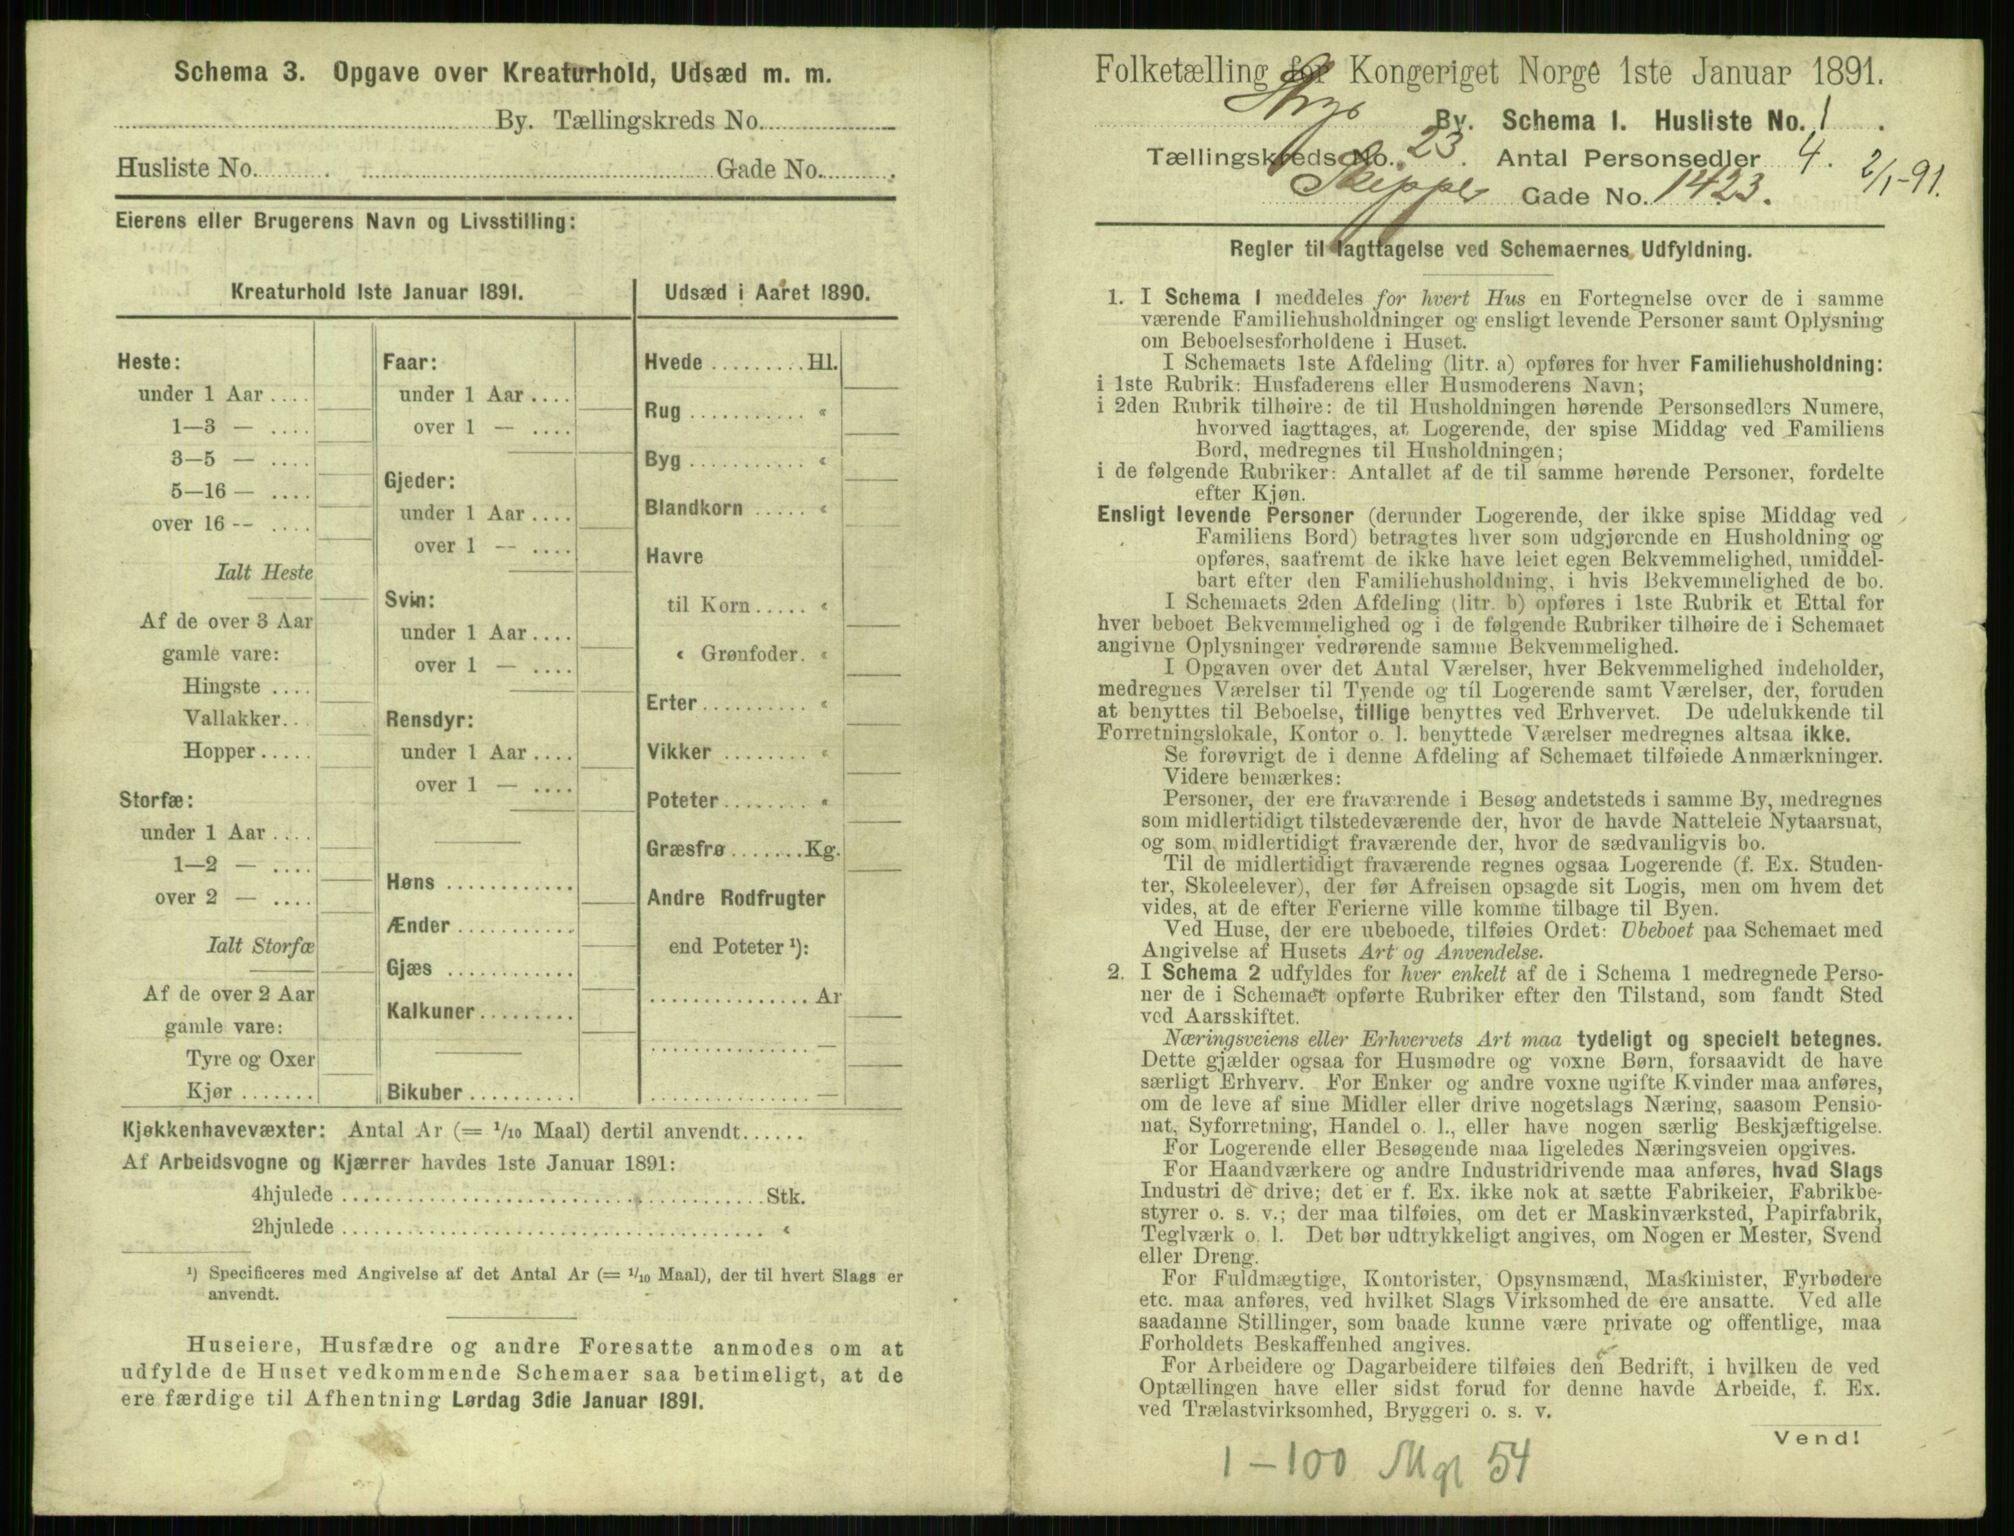 Schema 3. Opgave over Kreaturhold, Udsæd m. m.
By. Tællingskreds No.
Husliste No. . Gade No. .
Eierens eller Brugerens Navn og Livsstilling:
Kreaturhold 1ste Januar 1891.
Heste:
under 1 Aar ....
1—3 — ....
3—5 — ....
5—16 — ....
over 16 — ....
Ialt Heste
Af de over 3 Aar
gamle vare:
Hingste ....
Vallakker...
Hopper.....
Storfæ:
under 1 Aar ....
1—2 — ....
over 2 — ....
Ialt Storfæ
Af de over 2 Aar
gamle vare:
Tyre og Oxer
Kjør .......
Faar:
under 1 Aar ....
over 1 — ....
Gjeder:
under 1 Aar ....
over 1 — ....
Svin:
under 1 Aar ....
over 1 — ....
Rensdyr:
under 1 Aar ....
over 1 — ....
Høns ............
Ænder ...........
Gjæs ............
Kalkuner.........
Bikuber ..........
Udsæd i Aaret 1890.
Hvede ......... Hl.
Rug ........... «
Byg ........... «
Blandkorn ..... «
Havre
til Korn ..... «
« Grønfoder. «
Erter.......... «
Vikker ........ «
Poteter........ «
Græsfrø .......Kg.
Andre Rodfrugter
end Poteter ¹):
............... Ar
............... —
............... —
Kjøkkenhavevæxter: Antal Ar (= 1/10 Maal) dertil anvendt......
Af Arbeidsvogne og Kjærrer havdes 1ste Januar 1891:
4hjulede ........................................ Stk.
2hjulede ........................................ «
¹) Specificeres med Angivelse af det Antal Ar (= 1/10 Maal), der til hvert Slags er
anvendt.
Huseiere, Husfædre og andre Foresatte anmodes om at
udfylde de Huset vedkommende Schemaer saa betimeligt, at de
ere færdige til Afhentning Lørdag 3die Januar 1891.
Folketælling for Kongeriget Norge 1ste Januar 1891.
By. Schema I. Husliste No. 1 .
Tællingskreds No. 23 . Antal Personsedler 4.
2/1-91.
Gade No. 1423.
Regler til Iagttagelse ved Schemaernes Udfyldning.
1. I Schema 1 meddeles for hvert Hus en Fortegnelse over de i samme
værende Familiehusholdninger og ensligt levende Personer samt Oplysning
om Beboelsesforholdene i Huset.
I Schemaets 1ste Afdeling (litr. a) opføres for hver Familiehusholdning:
i 1ste Rubrik: Husfaderens eller Husmoderens Navn;
i 2den Rubrik tilhøire: de til Husholdningen hørende Personsedlers Numere,
hvorved iagttages, at Logerende, der spise Middag ved Familiens
Bord, medregnes til Husholdningen;
i de følgende Rubriker: Antallet af de til samme hørende Personer, fordelte
efter Kjøn.
Ensligt levende Personer (derunder Logerende, der ikke spise Middag ved
Familiens Bord) betragtes hver som udgjørende en Husholdning og
opføres, saafremt de ikke have leiet egen Bekvemmelighed, umiddel-
bart efter den Familiehusholdning, i hvis Bekvemmelighed de bo.
I Schemaets 2den Afdeling (litr. b) opføres i 1ste Rubrik et Ettal for
hver beboet Bekvemmelighed og i de følgende Rubriker tilhøire de i Schemaet
angivne Oplysninger vedrørende samme Bekvemmelighed.
I Opgaven over det Antal Værelser, hver Bekvemmelighed indeholder,
medregnes Værelser til Tyende og til Logerende samt Værelser, der, foruden
at benyttes til Beboelse, tillige benyttes ved Erhvervet. De udelukkende til
Forretningslokale, Kontor o. l. benyttede Værelser medregnes altsaa ikke.
Se forøvrigt de i denne Afdeling af Schemaet tilføiede Anmærkninger.
Videre bemærkes:
Personer, der ere fraværende i Besøg andetsteds i samme By, medregnes
som midlertidigt tilstedeværende der, hvor de havde Natteleie Nytaarsnat,
og som midlertidigt fraværende der, hvor de sædvanligvis bo.
Til de midlertidigt fraværende regnes ogsaa Logerende (f. Ex. Studen-
ter, Skoleelever), der før Afreisen opsagde sit Logis, men om hvem det
vides, at de efter Ferierne ville komme tilbage til Byen.
Ved Huse, der ere ubeboede, tilføies Ordet: Ubeboet paa Schemaet med
Angivelse af Husets Art og Anvendelse.
2. I Schema 2 udfyldes for hver enkelt af de i Schema 1 medregnede Perso-
ner de i Schemaet opførte Rubriker efter den Tilstand, som fandt Sted
ved Aarsskiftet.
Næringsveiens eller Erhvervets Art maa tydeligt og specielt betegnes.
Dette gjælder ogsaa for Husmødre og voxne Børn, forsaavidt de have
særligt Erhverv. For Enker og andre voxne ugifte Kvinder maa anføres,
om de leve af sine Midler eller drive nogetslags Næring, saasom Pensio-
nat, Syforretning, Handel o. l., eller have nogen særlig Beskjæftigelse.
For Logerende eller Besøgende maa ligeledes Næringsveien opgives.
For Haandværkere og andre Industridrivende maa anføres, hvad Slags
Industri de drive; det er f. Ex. ikke nok at sætte Fabrikeier, Fabrikbe-
styrer o. s. v.; der maa tilføies, om det er Maskinværksted, Papirfabrik,
Teglværk o. l. Det bør udtrykkeligt angives, om Nogen er Mester, Svend
eller Dreng.
For Fuldmægtige, Kontorister, Opsynsmænd, Maskinister, Fyrbødere
etc. maa anføres, ved hvilket Slags Virksomhed de ere ansatte. Ved alle
saadanne Stillinger, som baade kunne være private og offentlige, maa
Forholdets Beskaffenhed angives.
For Arbeidere og Dagarbeidere tilføies den Bedrift, i hvilken de ved
Optællingen have eller sidst forud for denne havde Arbeide, f. Ex.
ved Trælastvirksomhed, Bryggeri o. s. v.
Vend!
1 - 100 Mgl 54